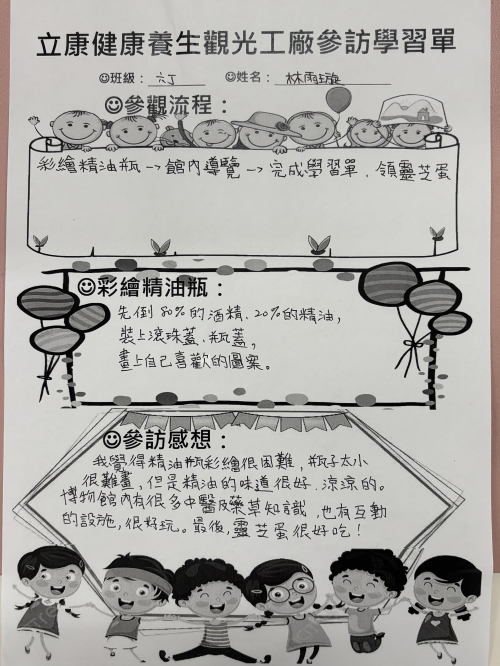 立康健康養生觀光工廠參訪學習單
☺班級：六丁 ☺姓名：林雨璇
☺參觀流程：
彩繪精油瓶→館內導覽→完成學習單、領靈芝蛋
☺彩繪精油瓶：
先倒80%的酒精、20%的精油，
裝上滾珠蓋、瓶蓋，
畫上自己喜歡的圖案。
☺參訪感想：
我覺得精油瓶彩繪很困難，瓶子太小
很難畫，但是精油的味道很好、涼涼的。
博物館內有很多中醫及藥草知識，也有互動
的設施，很好玩。最後，靈芝蛋很好吃！